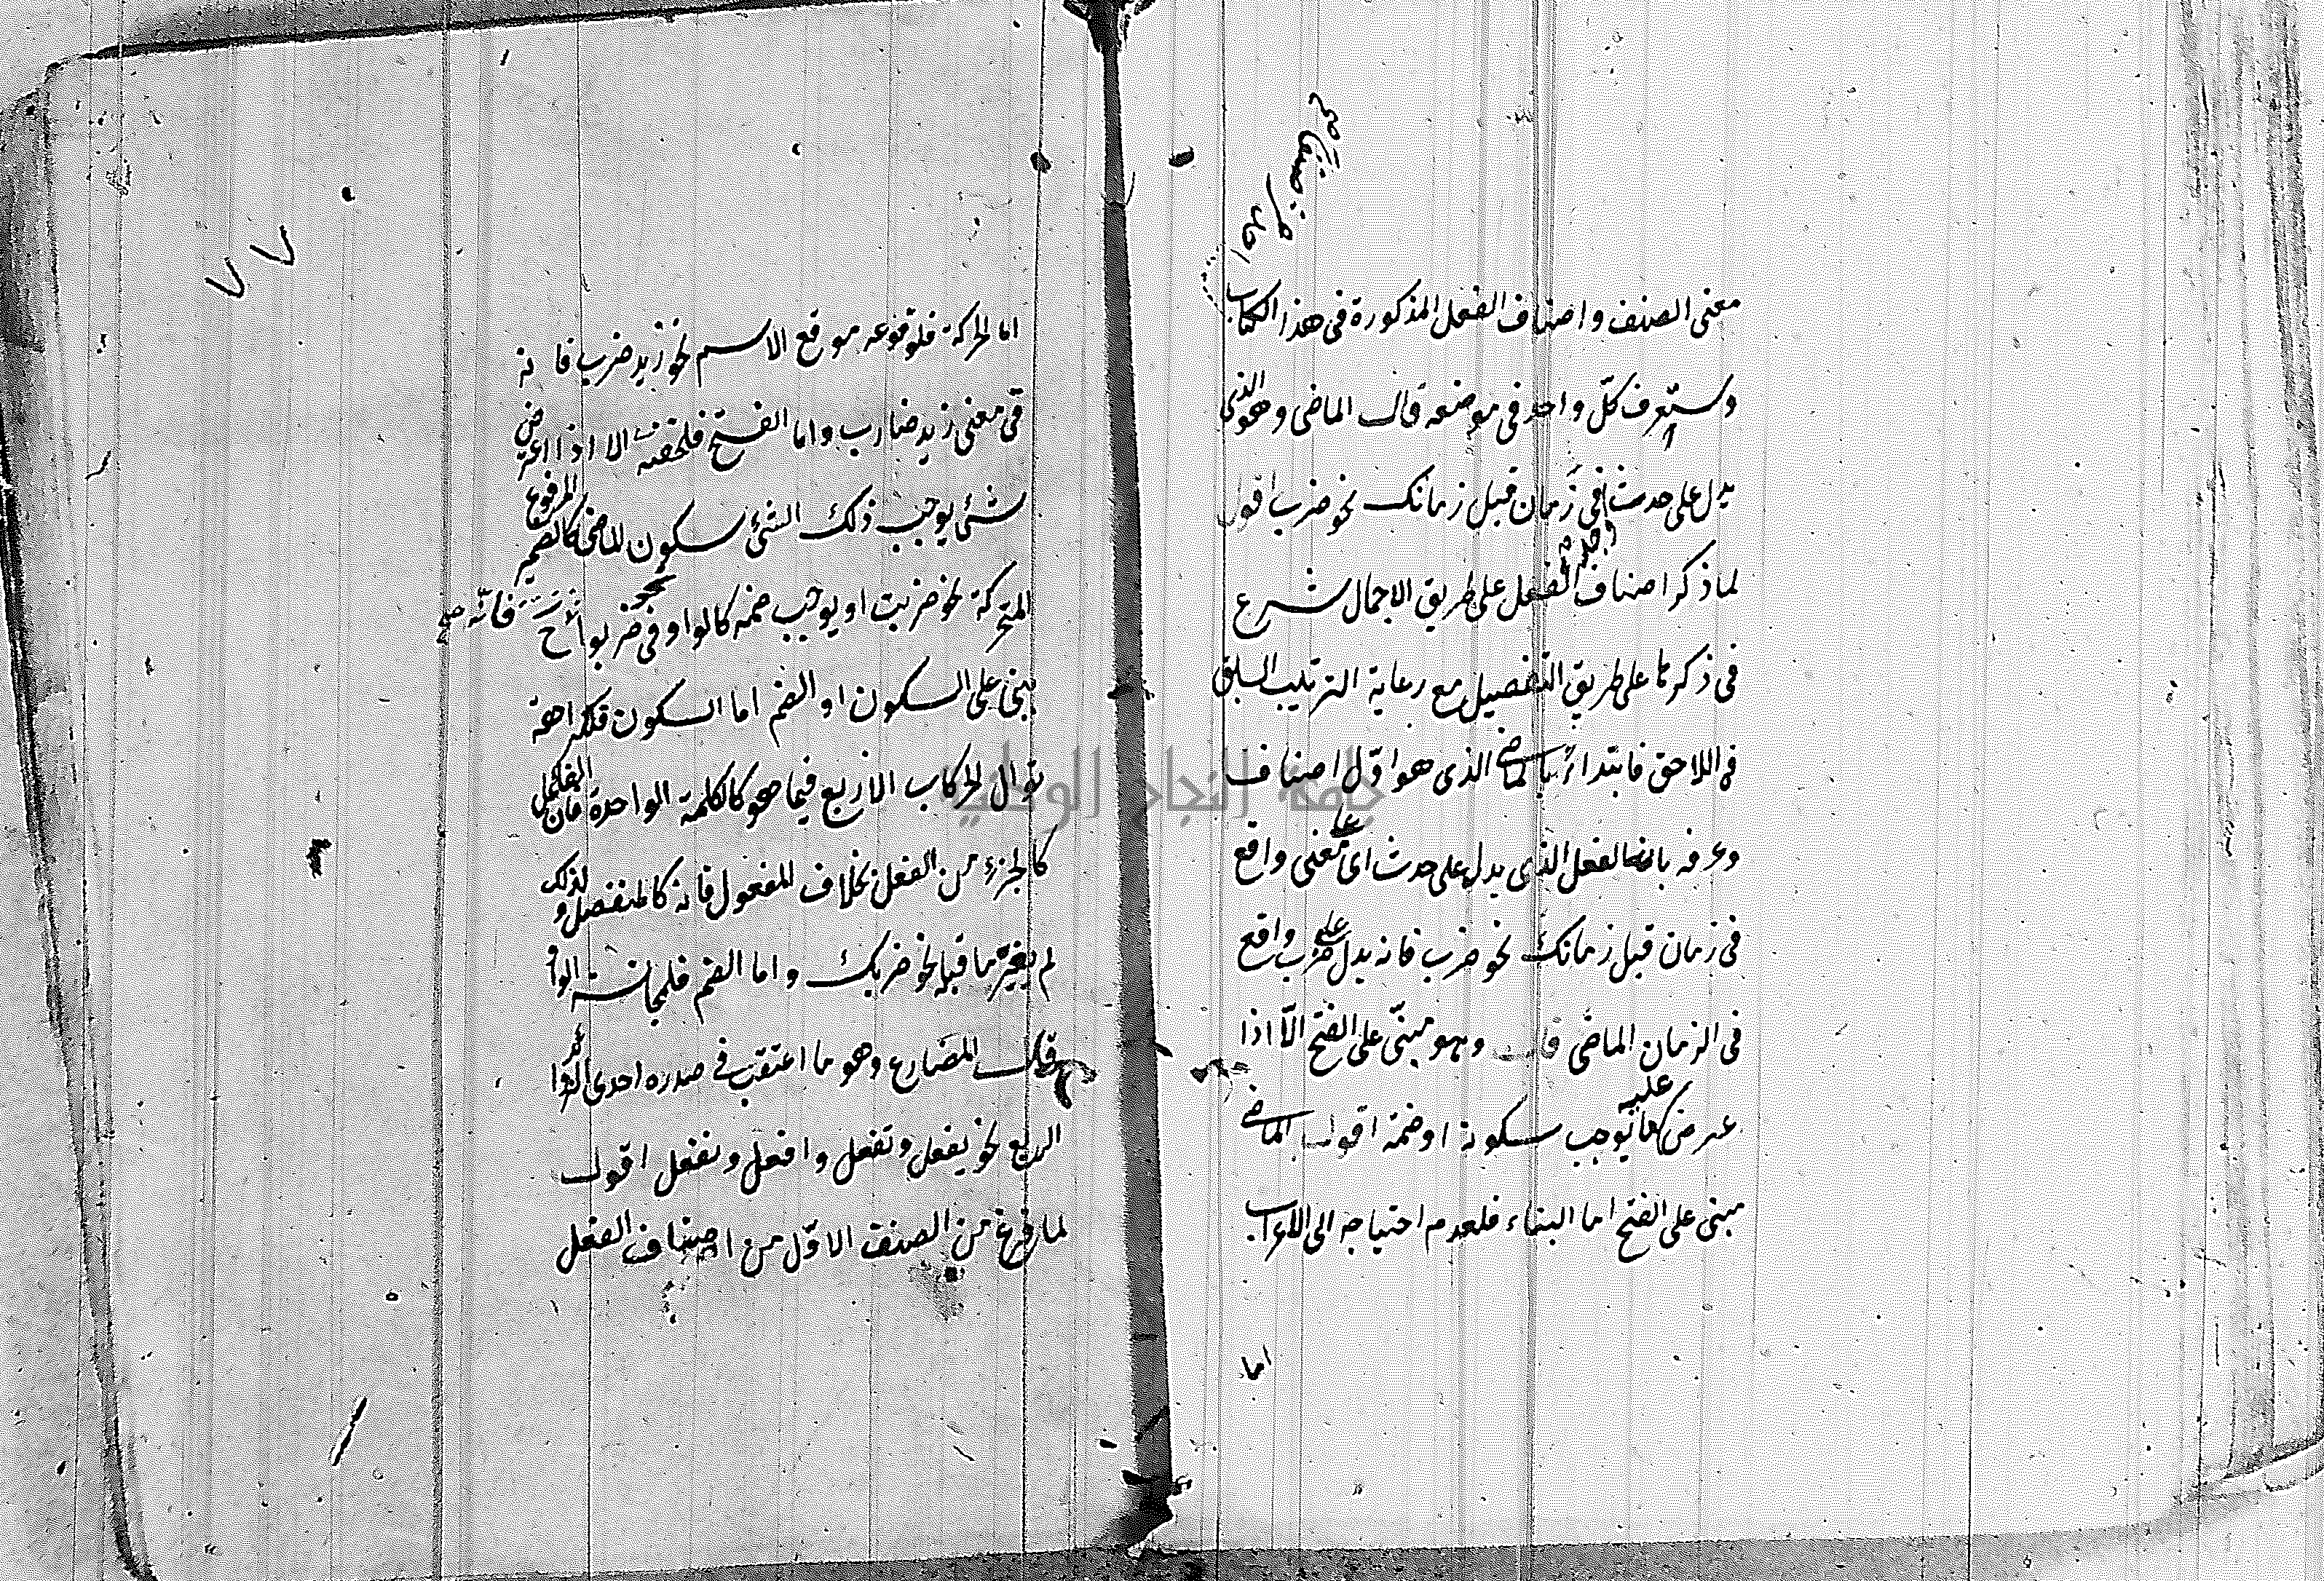 معنى الصنف واصناف الفعل المذكورة فى هذا الكتاب
وستعرف كلّ واحد فى موضعه قال الماضى وهو الذى
يدل على حدث فى زمان قبل زمانك نحو ضرب اقول
لما ذكر اصناف الفعل على طريق الاجمال شرع
فى ذكرها على طريق التفصيل مع رعاية الترتيب السابق
فى اللاحق فابتداء بالماضى الذى هو اوّل اصناف
وعرفه بانه الفعل الذى يدل على حدث اى على معنى واقع
فى زمان قبل زمانك نحو ضرب فانه يدل على ضرب واقع
فى الزمان الماضى قال وهو مبنىّ على الفتح الّا اذا
عرض عليه ما يوجب سكونه او ضمه اقول الماضى
مبنى على الفتح اما البناء فلعدم احتياجه الى الاعراب
اما
٧٧
اما الحركة فلوقوعه موقع الاسم نحو زيد ضرب فانه
فى معنى زيد ضارب واما الفتح فلخفته الا اذا اعترض
شئ يوجب ذلك الشئ سكون الماضى كالضمير المرفوع
المتحركة نحو ضربت او يوجب ضمه كالواو فى نحو ضربوا فانّه ح
مبنى على السكون او الضم اما السكون فلكراهة
توالى الحركات الاربع فيما هو كالكلمة الواحدة فان الفاعل
كالجزء من الفعل بخلاف المفعول فانه كالمنفصل ولذلك
لم يغير ما قبله نحو ضربك واما الضم فلمجانسة الواو
قال المضارع وهو ما اعتقب فى صدره احدى الزوائد
الاربع نحو يفعل وتفعل وافعل ونفعل اقول
لما فرغ من الصنف الاوّل من اصناف الفعل
جامعة النجاح الوطنية